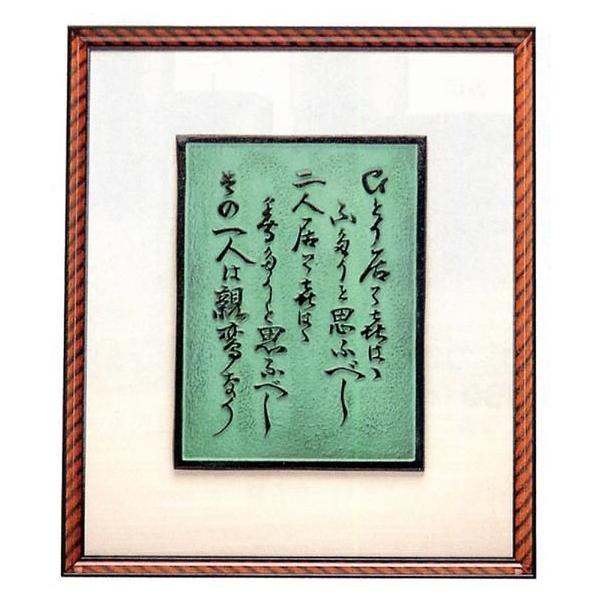 ひとり居て喜はゝ
ふたりと思ふべし
二人居て喜はゝ
みたりと思ふべし
その一人は親鸞なり